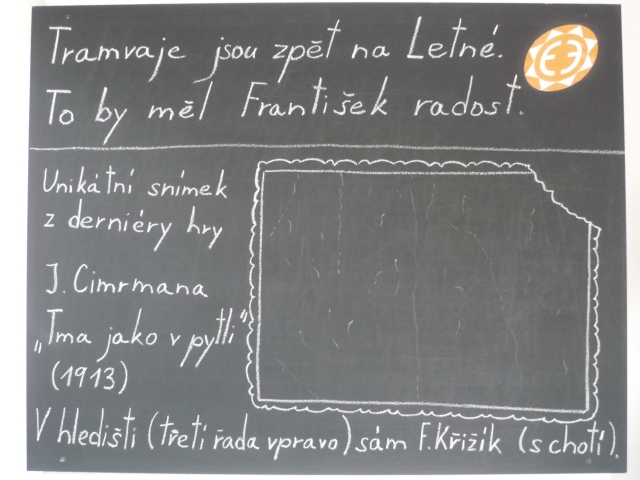 Tramvaje jsou zpět na Letné.
To by měl František radost.
Unikátní snímek
z derniéry hry
J. Cimrmana
„Tma jako v pytli“
(1913)
V hledišti (třetí řada vpravo) sám F. Křižík (s chotí).